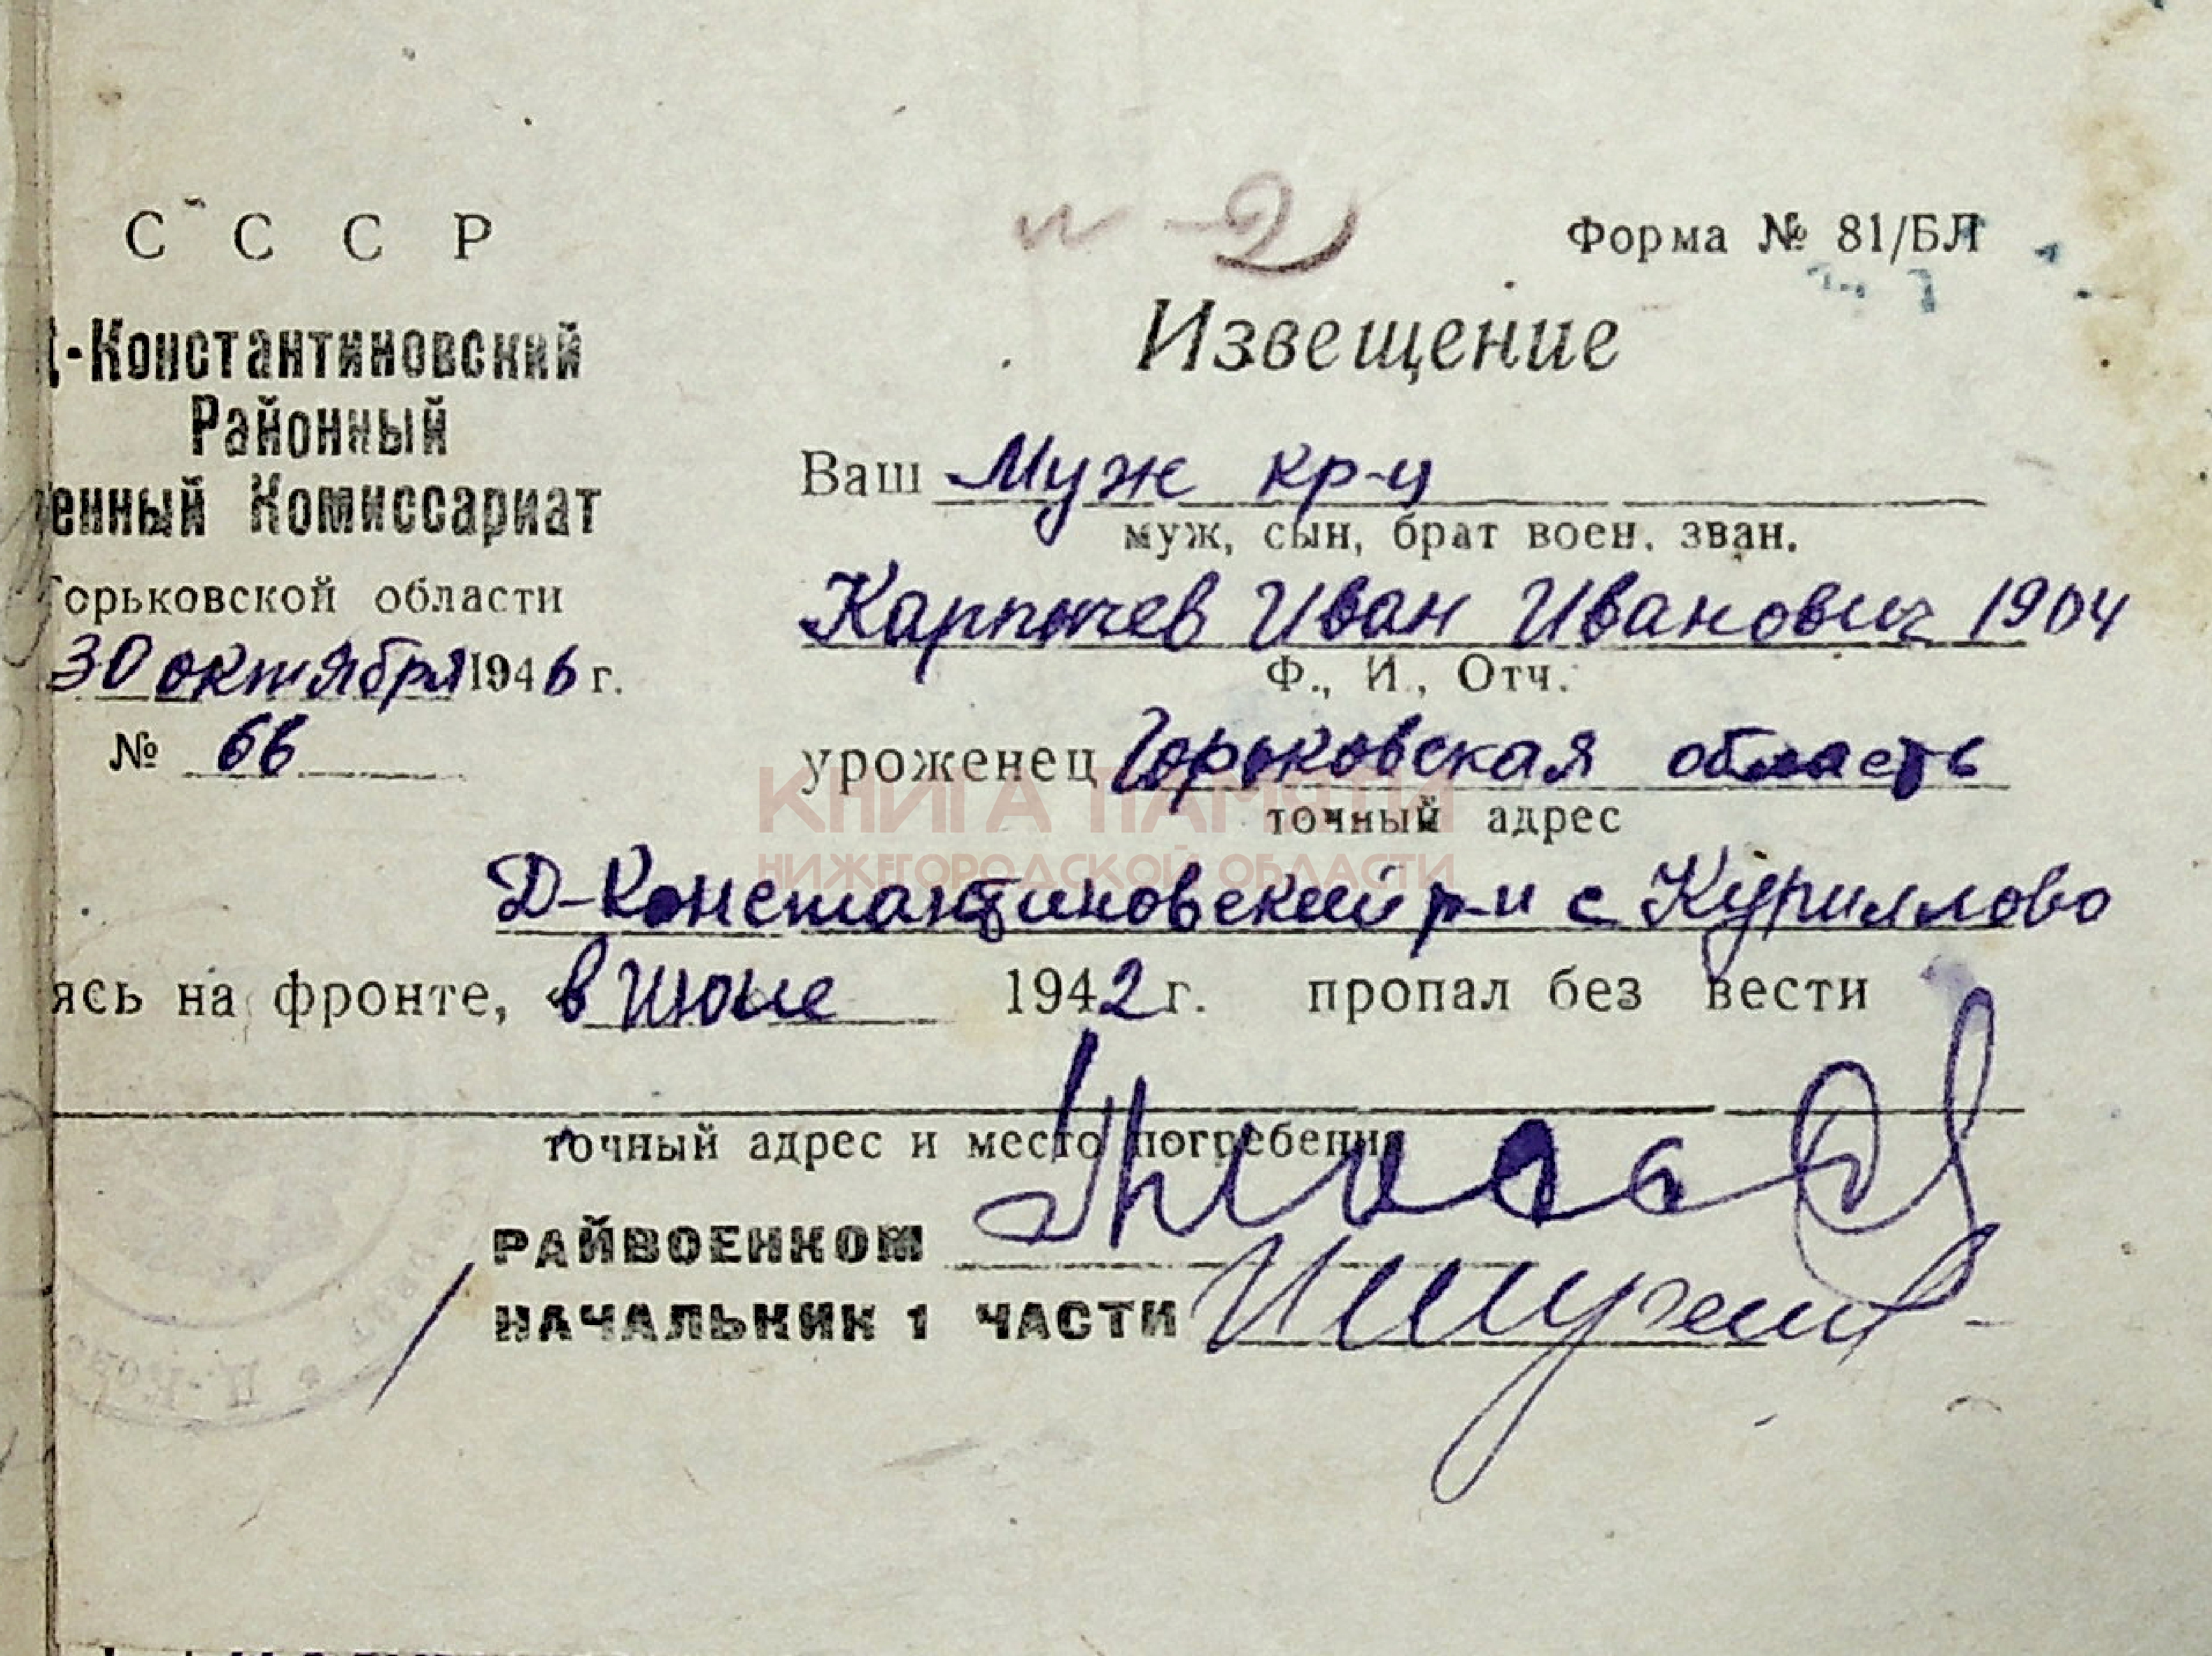 С С С Р
Д-Константиновский
Районный
енный Комиссариат
Горьковской области
30 октября 1946 г.
№ 66
и-2
Форма № 81/БЛ
Извещение
Ваш Муж кр-ц
муж, сын, брат воен. зван.
Карпычев Иван Иванович 1904
Ф., И., Отч.
уроженец Горьковская область
точный адрес
Д-Константиновский р-н с Куриллово
ясь на фронте, в июне 1942 г. пропал без вести
точный адрес и место погребения
РАЙВОЕНКОМ
НАЧАЛЬНИК 1 ЧАСТИ
КНИГА ПАМЯТИ
НИЖЕГОРОДСКОЙ ОБЛАСТИ